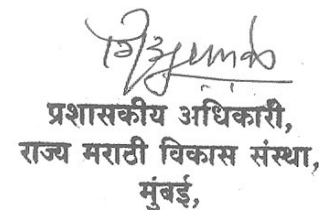 प्रशासकीय अधिकारी,
राज्य मराठी विकास संस्था,
मुंबई,